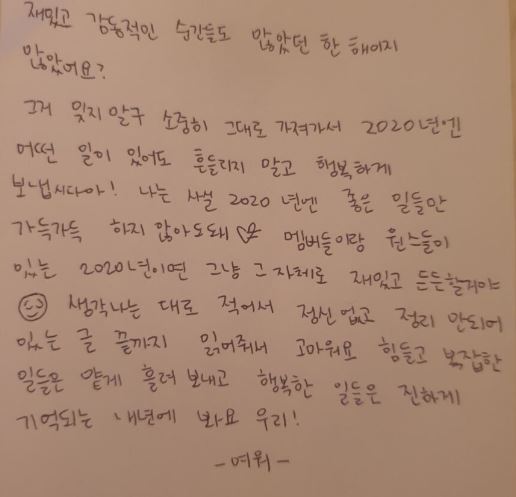 재밌고 감동적인 순간들도 많았던 한 해이지
않았어요?
그거 잊지말구 소중히 그대로 가져가서 2020년엔
어떤 일이 있어도 흔들리지 말고 행복하게
보냅시다아! 나는 사실 2020년엔 좋은 일들만
가득가득 하지 않아도돼 ☆ 멤버들이랑 원스들이
있는 2020년이면 그냥 그 자체로 재밌고 든든할거야
☺ 생각나는 대로 적어서 정신없고 정리 안되어
있는 글 끝까지 읽어줘서 고마워요 힘들고 복잡한
일들은 얕게 흘려 보내고 행복한 일들은 진하게
기억되는 내년에 봐요 우리!
-여워-